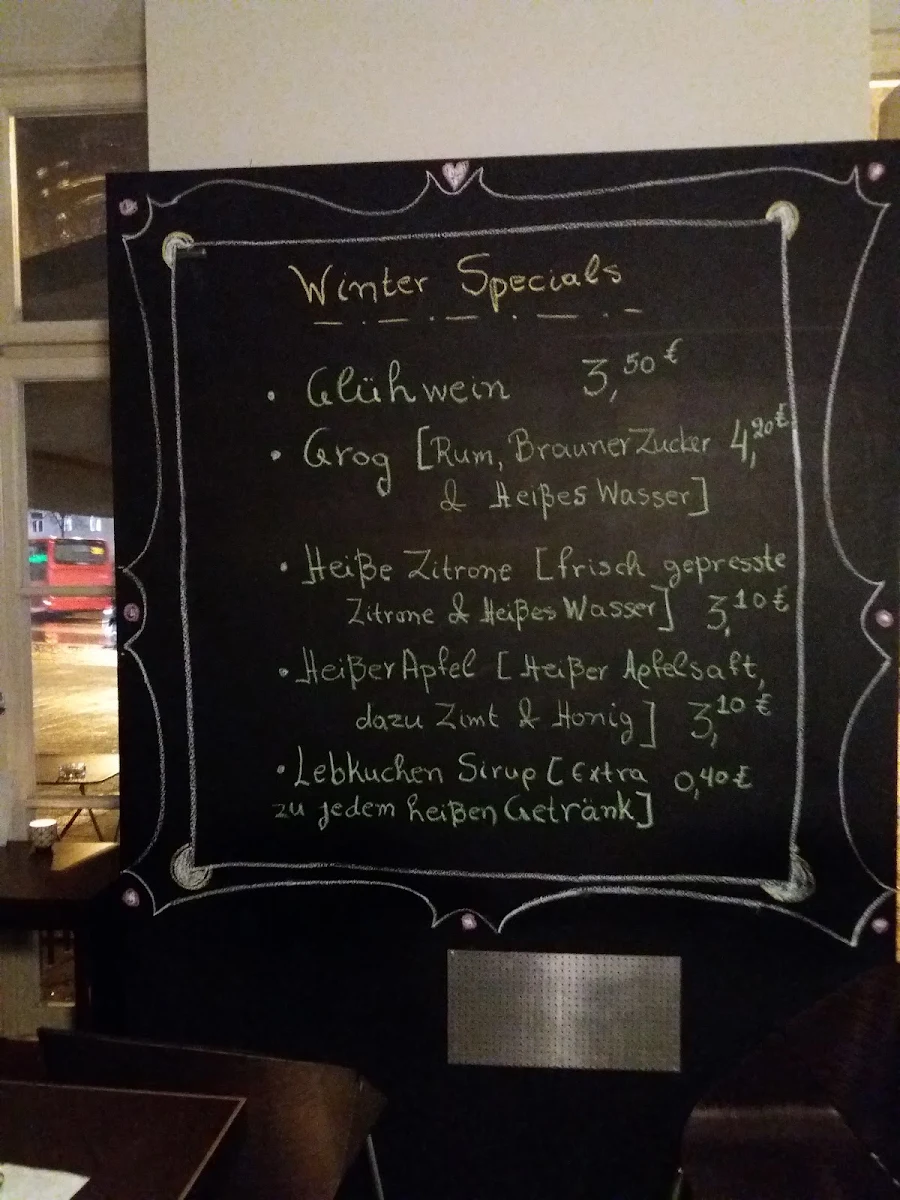 Winter Specials
• Glühwein 3,50 €
• Grog [Rum, Brauner Zucker 4,20 €
& Heißes Wasser]
• Heiße Zitrone [frisch gepresste
Zitrone & Heißes Wasser] 3,10 €
• Heißer Apfel [Heißer Apfelsaft,
dazu Zimt & Honig] 3,10 €
• Lebkuchen Sirup [Extra 0,40 €
zu jedem heißen Getränk]